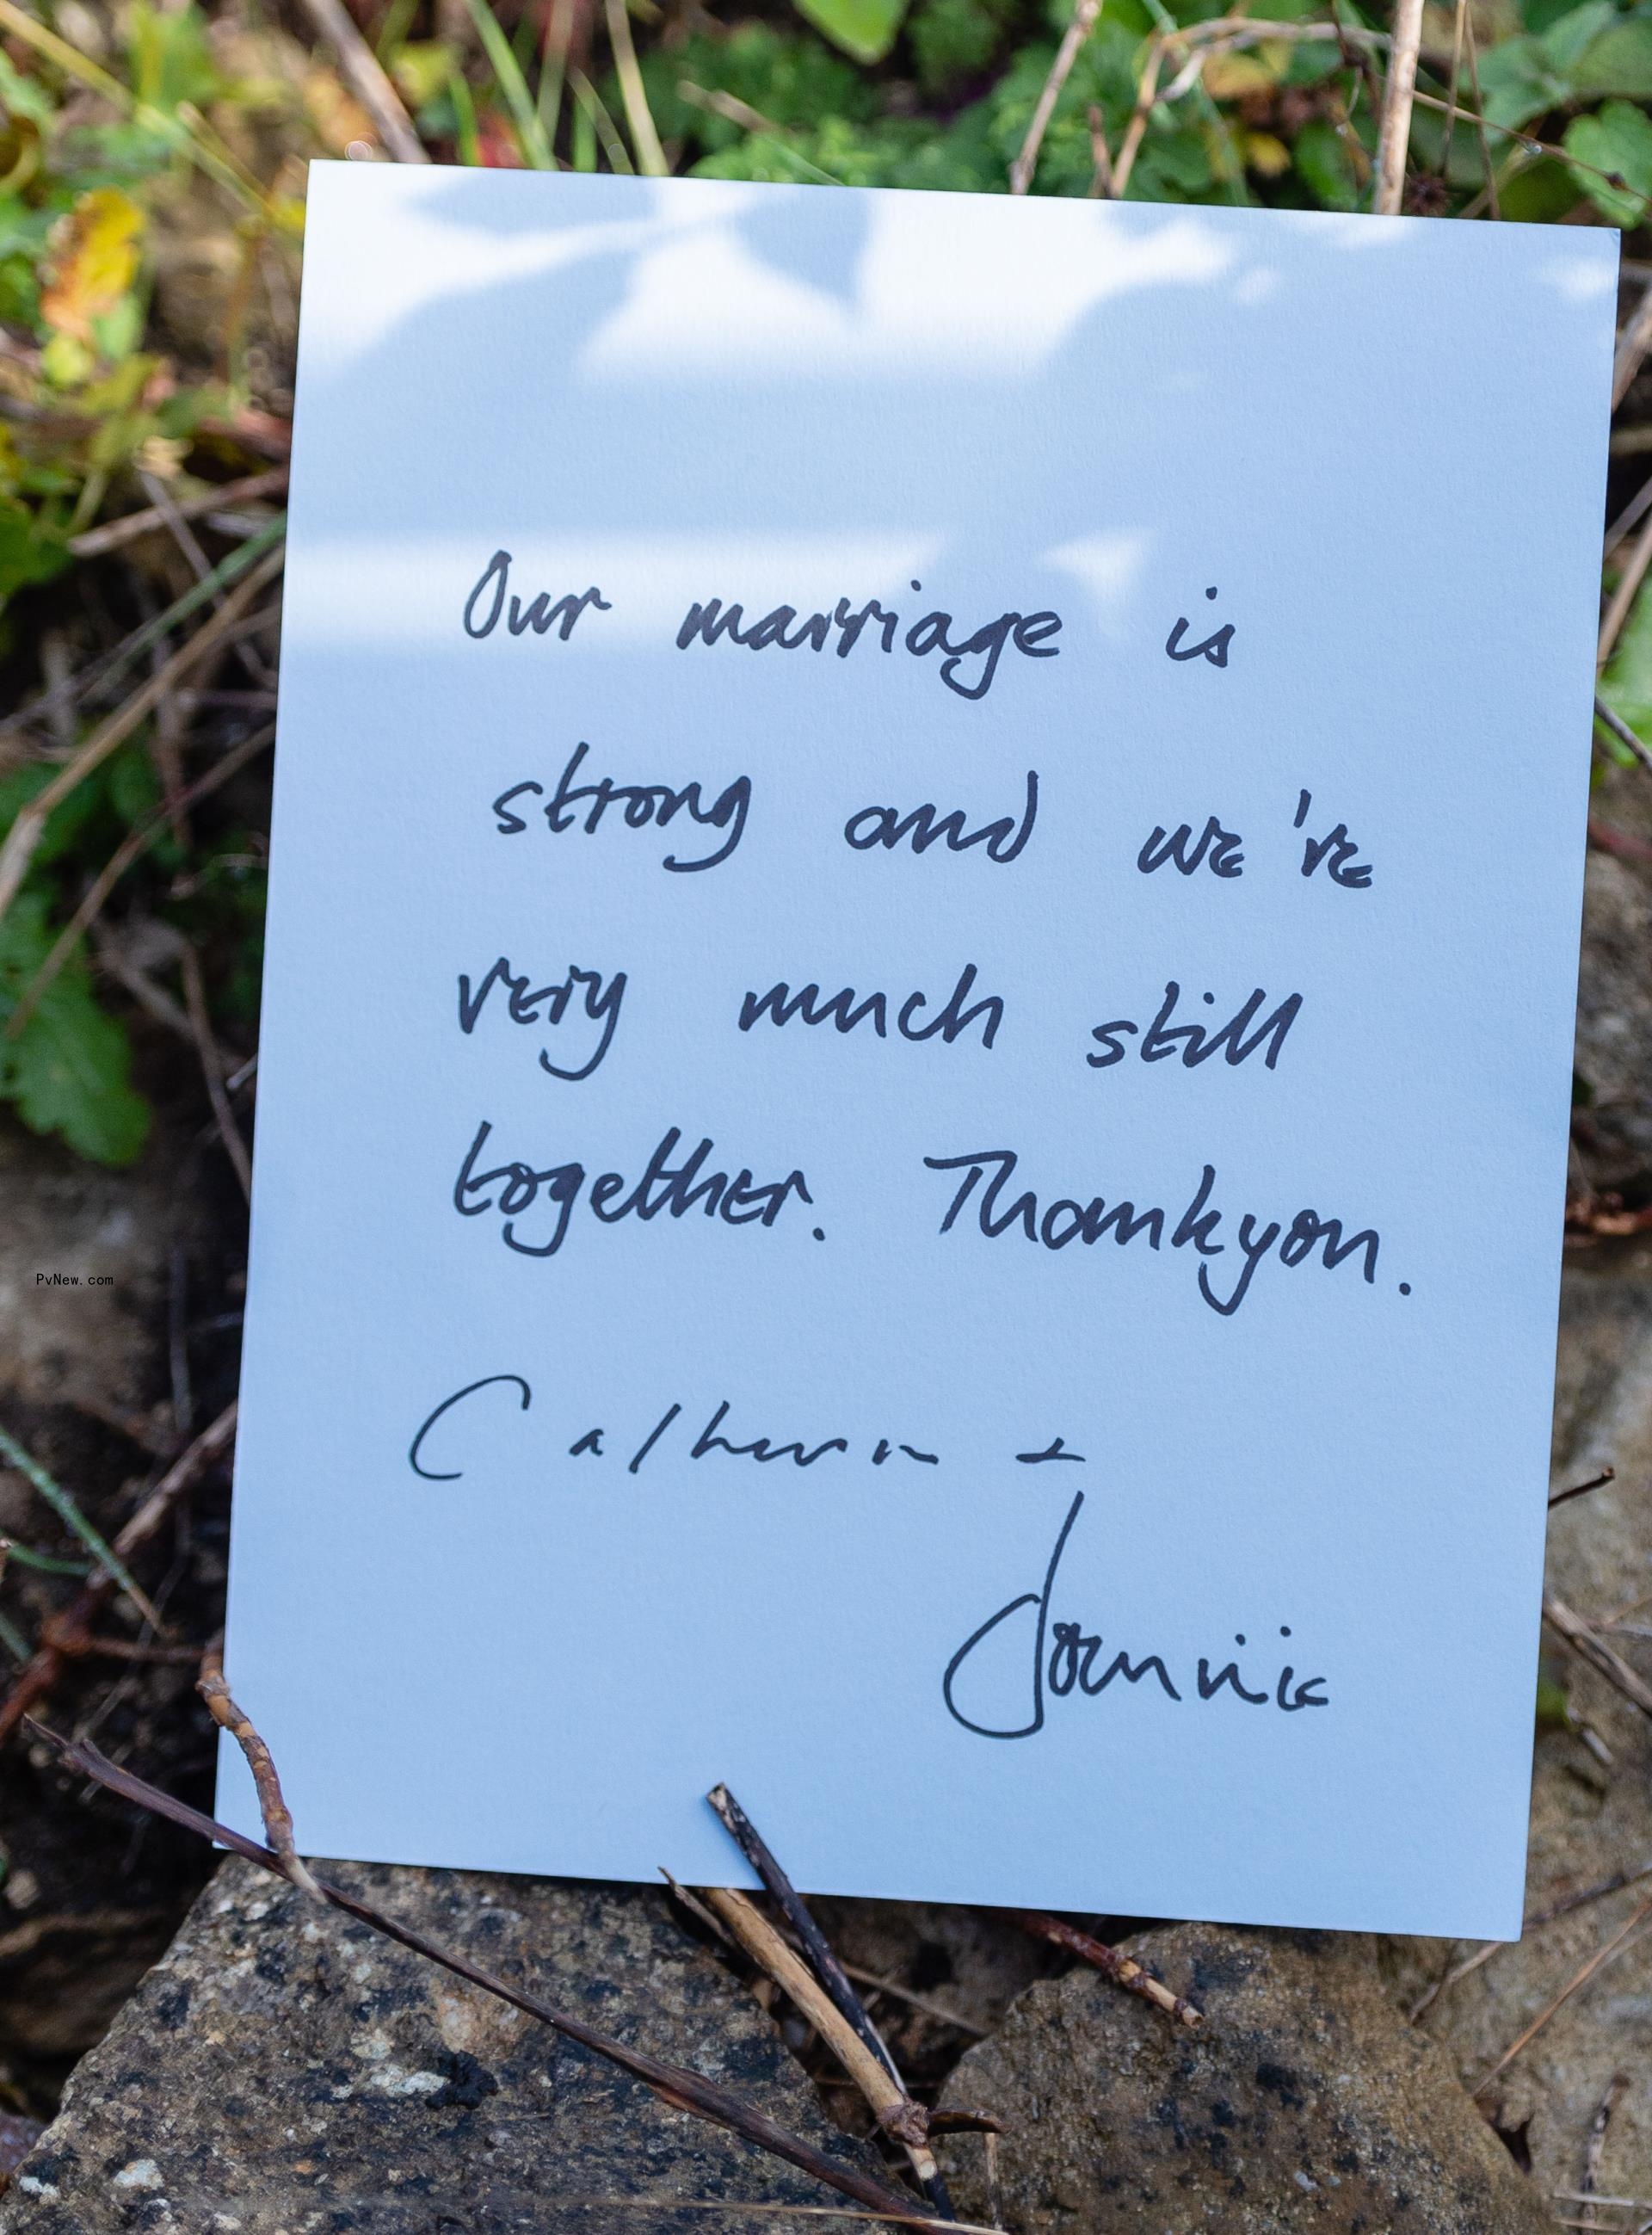 Our marriage is
strong and we're
very much still
together. Thankyou.
Catherine +
Dominic
PvNew.com